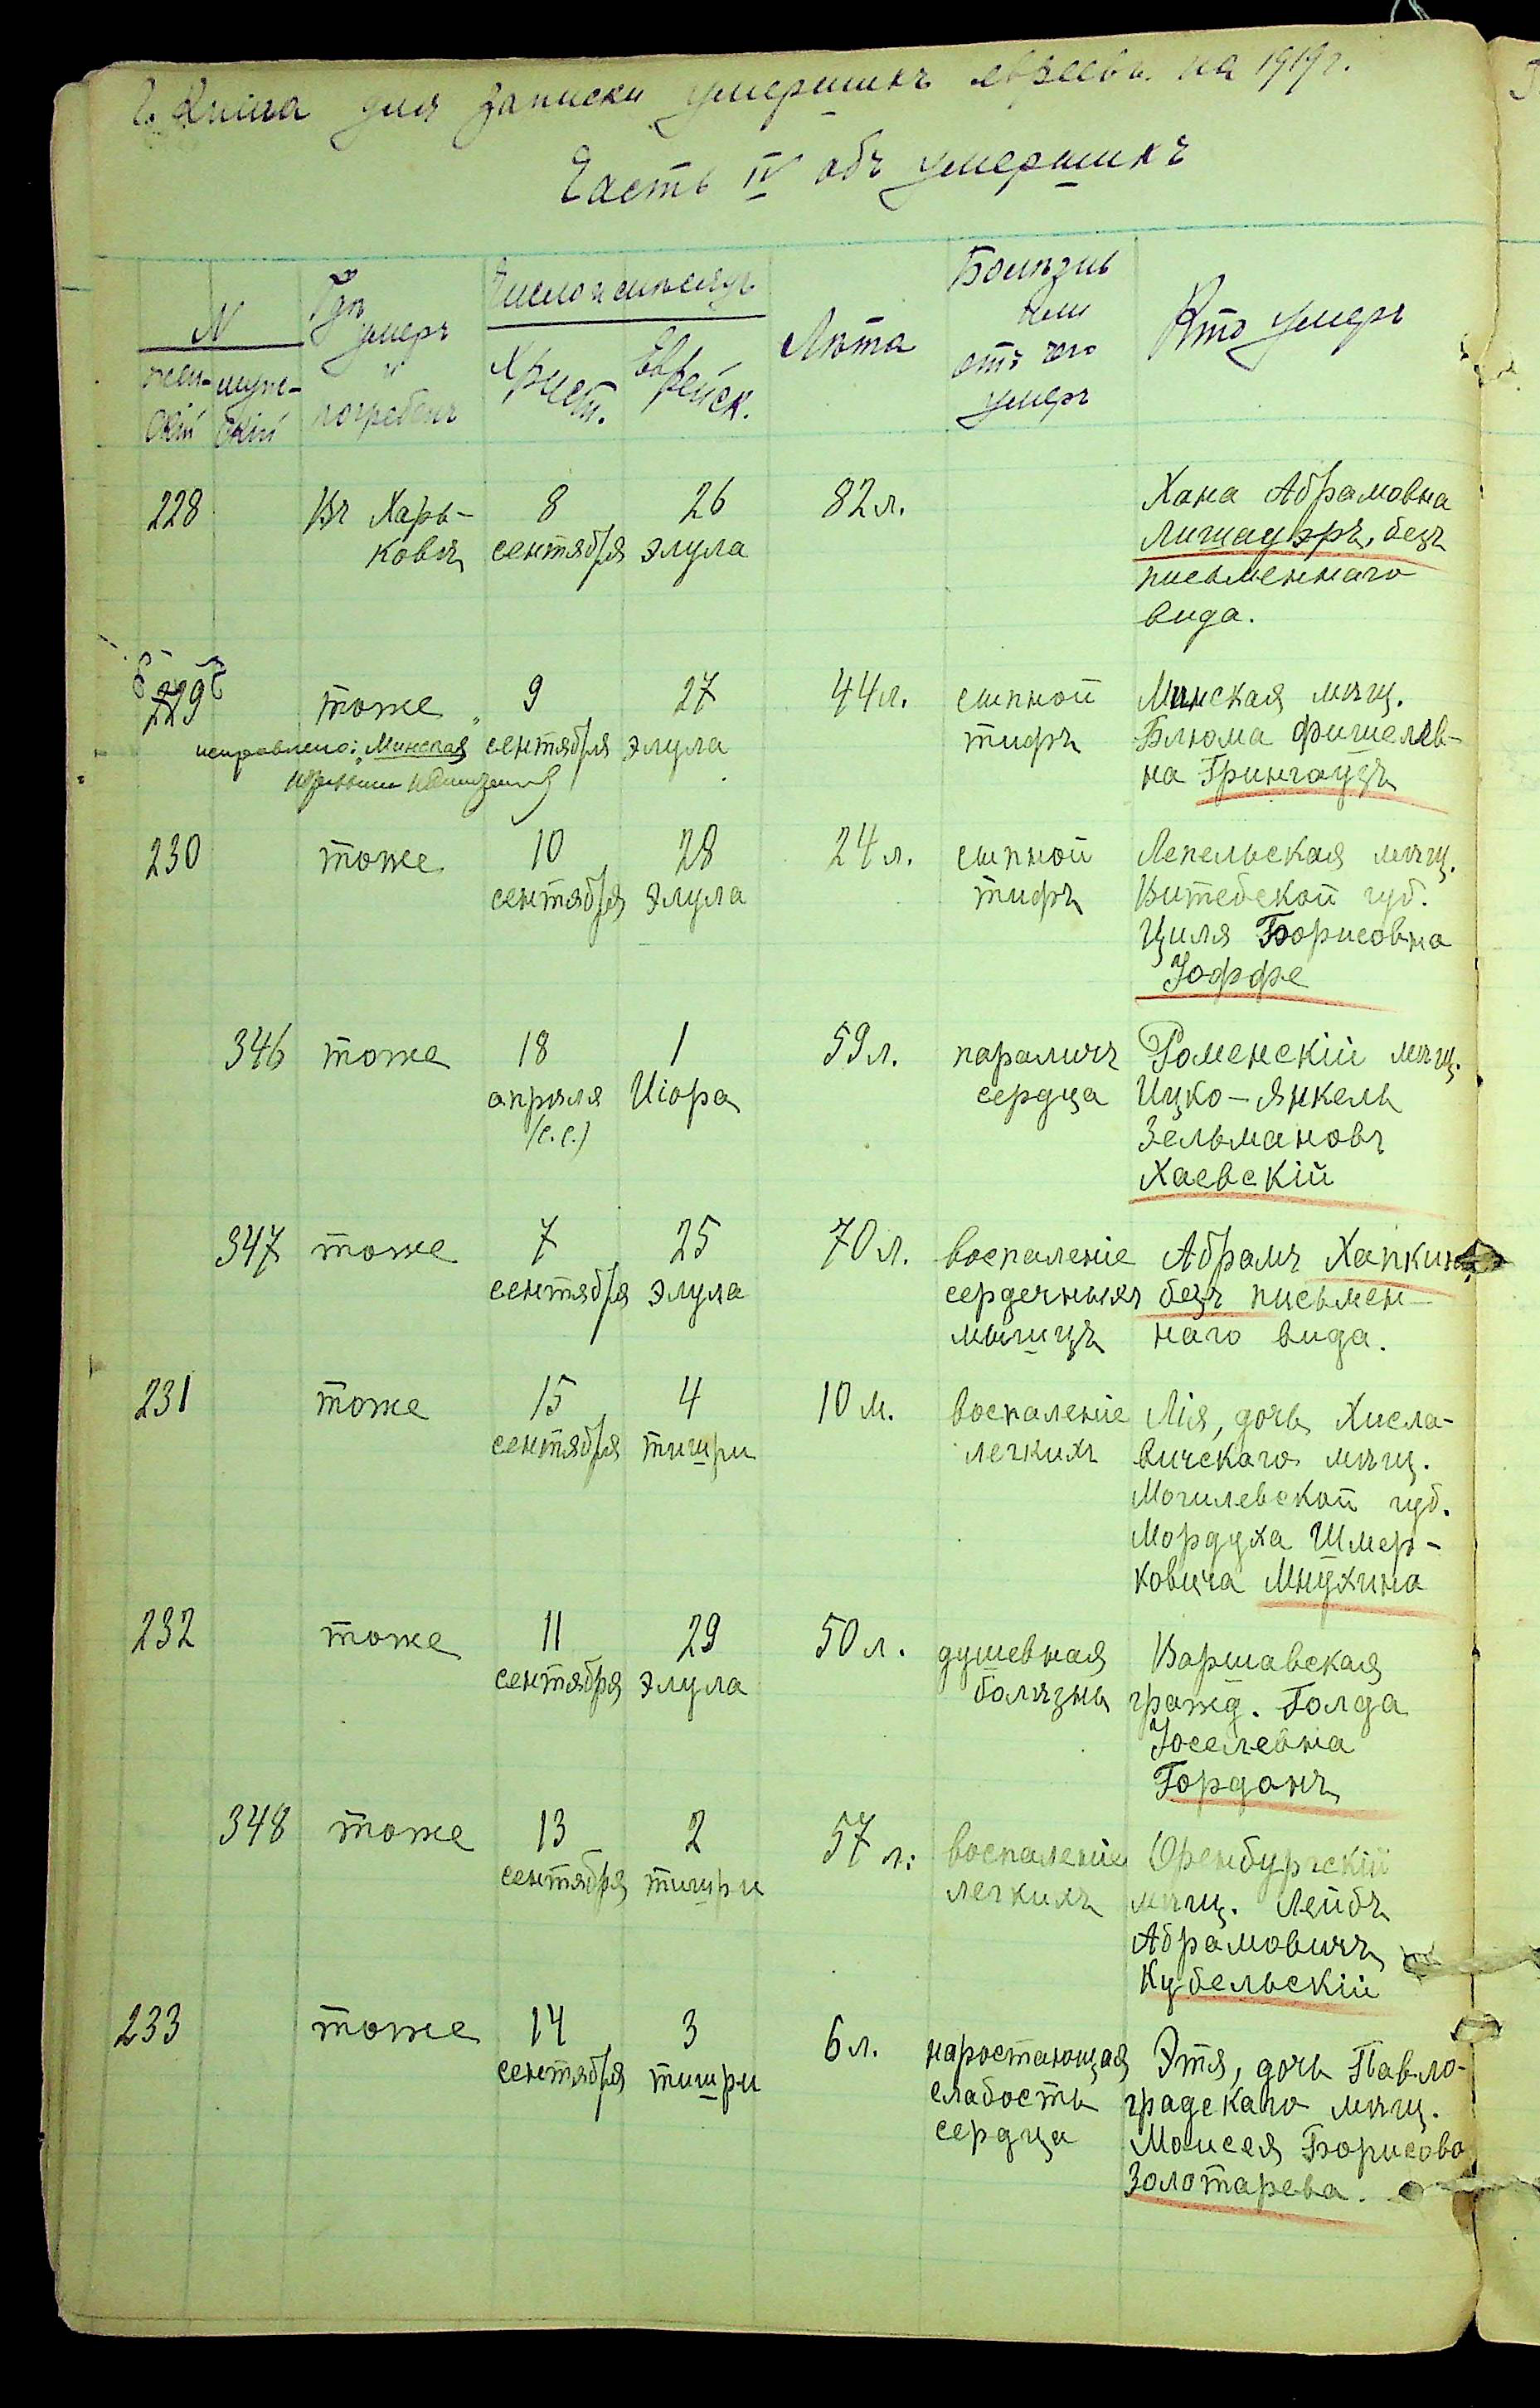 Книга для записки умершихъ евреевъ на 1919 г.
Часть IV объ умершихъ
N
жен-
скій
муж-
скій
Гдѣ
умеръ
и
погребенъ
Число и мѣсяцъ
Христ.
Еврейск.
Лѣта
Болѣзнь
или
отъ чего
умеръ
Кто умеръ
228 Въ Харь- 8 26 82 л. Хана Абрамовна
ковѣ сентября элула Лигиауэръ, безъ
письменнаго
вида.
229 тоже 9 27 44 л. сыпной Минская мѣщ.
исправлено: „Минская сентября элула тифъ Блюма Фишелев-
на Грингаузъ
230 тоже 10 28 24 л. сыпной Лепельская мѣщ.
сентября элула тифъ Витебской губ.
Циля Борисовна
Іоффе
346 тоже 18 1 59 л. параличъ Роменскій мѣщ.
апрѣля Иіора сердца Ицко-Янкель
(с.с.) Зельмановъ
Хаевскій
347 тоже 7 25 70 л. воспаленіе Абрамъ Хапкинъ
сентября элула сердечныхъ безъ письмен-
мышцъ наго вида.
231 тоже 15 4 10 м. воспаленіе Лія, дочь Хисла-
сентября тишри легкихъ вичскаго мѣщ.
Могилевской губ.
Мордуха Шмер-
ковича Мнухина
232 тоже 11 29 50 л. душевная Варшавская
сентября элула болѣзнь гражд. Голда
Іоселевна
Гордонъ
348 тоже 13 2 57 л. воспаленіе Оренбургскій
сентября тишри легкихъ мѣщ. Лейбъ
Абрамовичъ
Кубельскій
233 тоже 14 3 6 л. наростающая Этя, дочь Павло-
сентября тишри слабость градскаго мѣщ.
сердца Моисея Борисова
Золотарева.